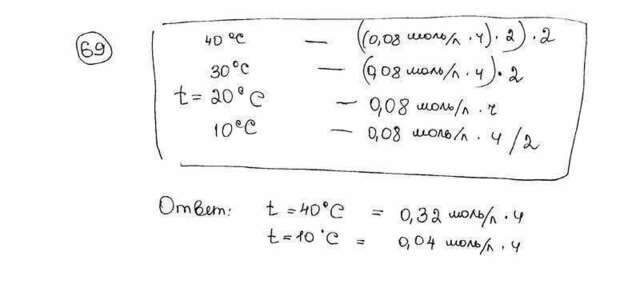 69
40 °C — ((0,08 моль/л · ч) · 2) · 2
30 °C — (0,08 моль/л · ч) · 2
t = 20 °C — 0,08 моль/л · ч
10 °C — 0,08 моль/л · ч / 2
Ответ: t = 40 °C = 0,32 моль/л · ч
t = 10 °C = 0,04 моль/л · ч